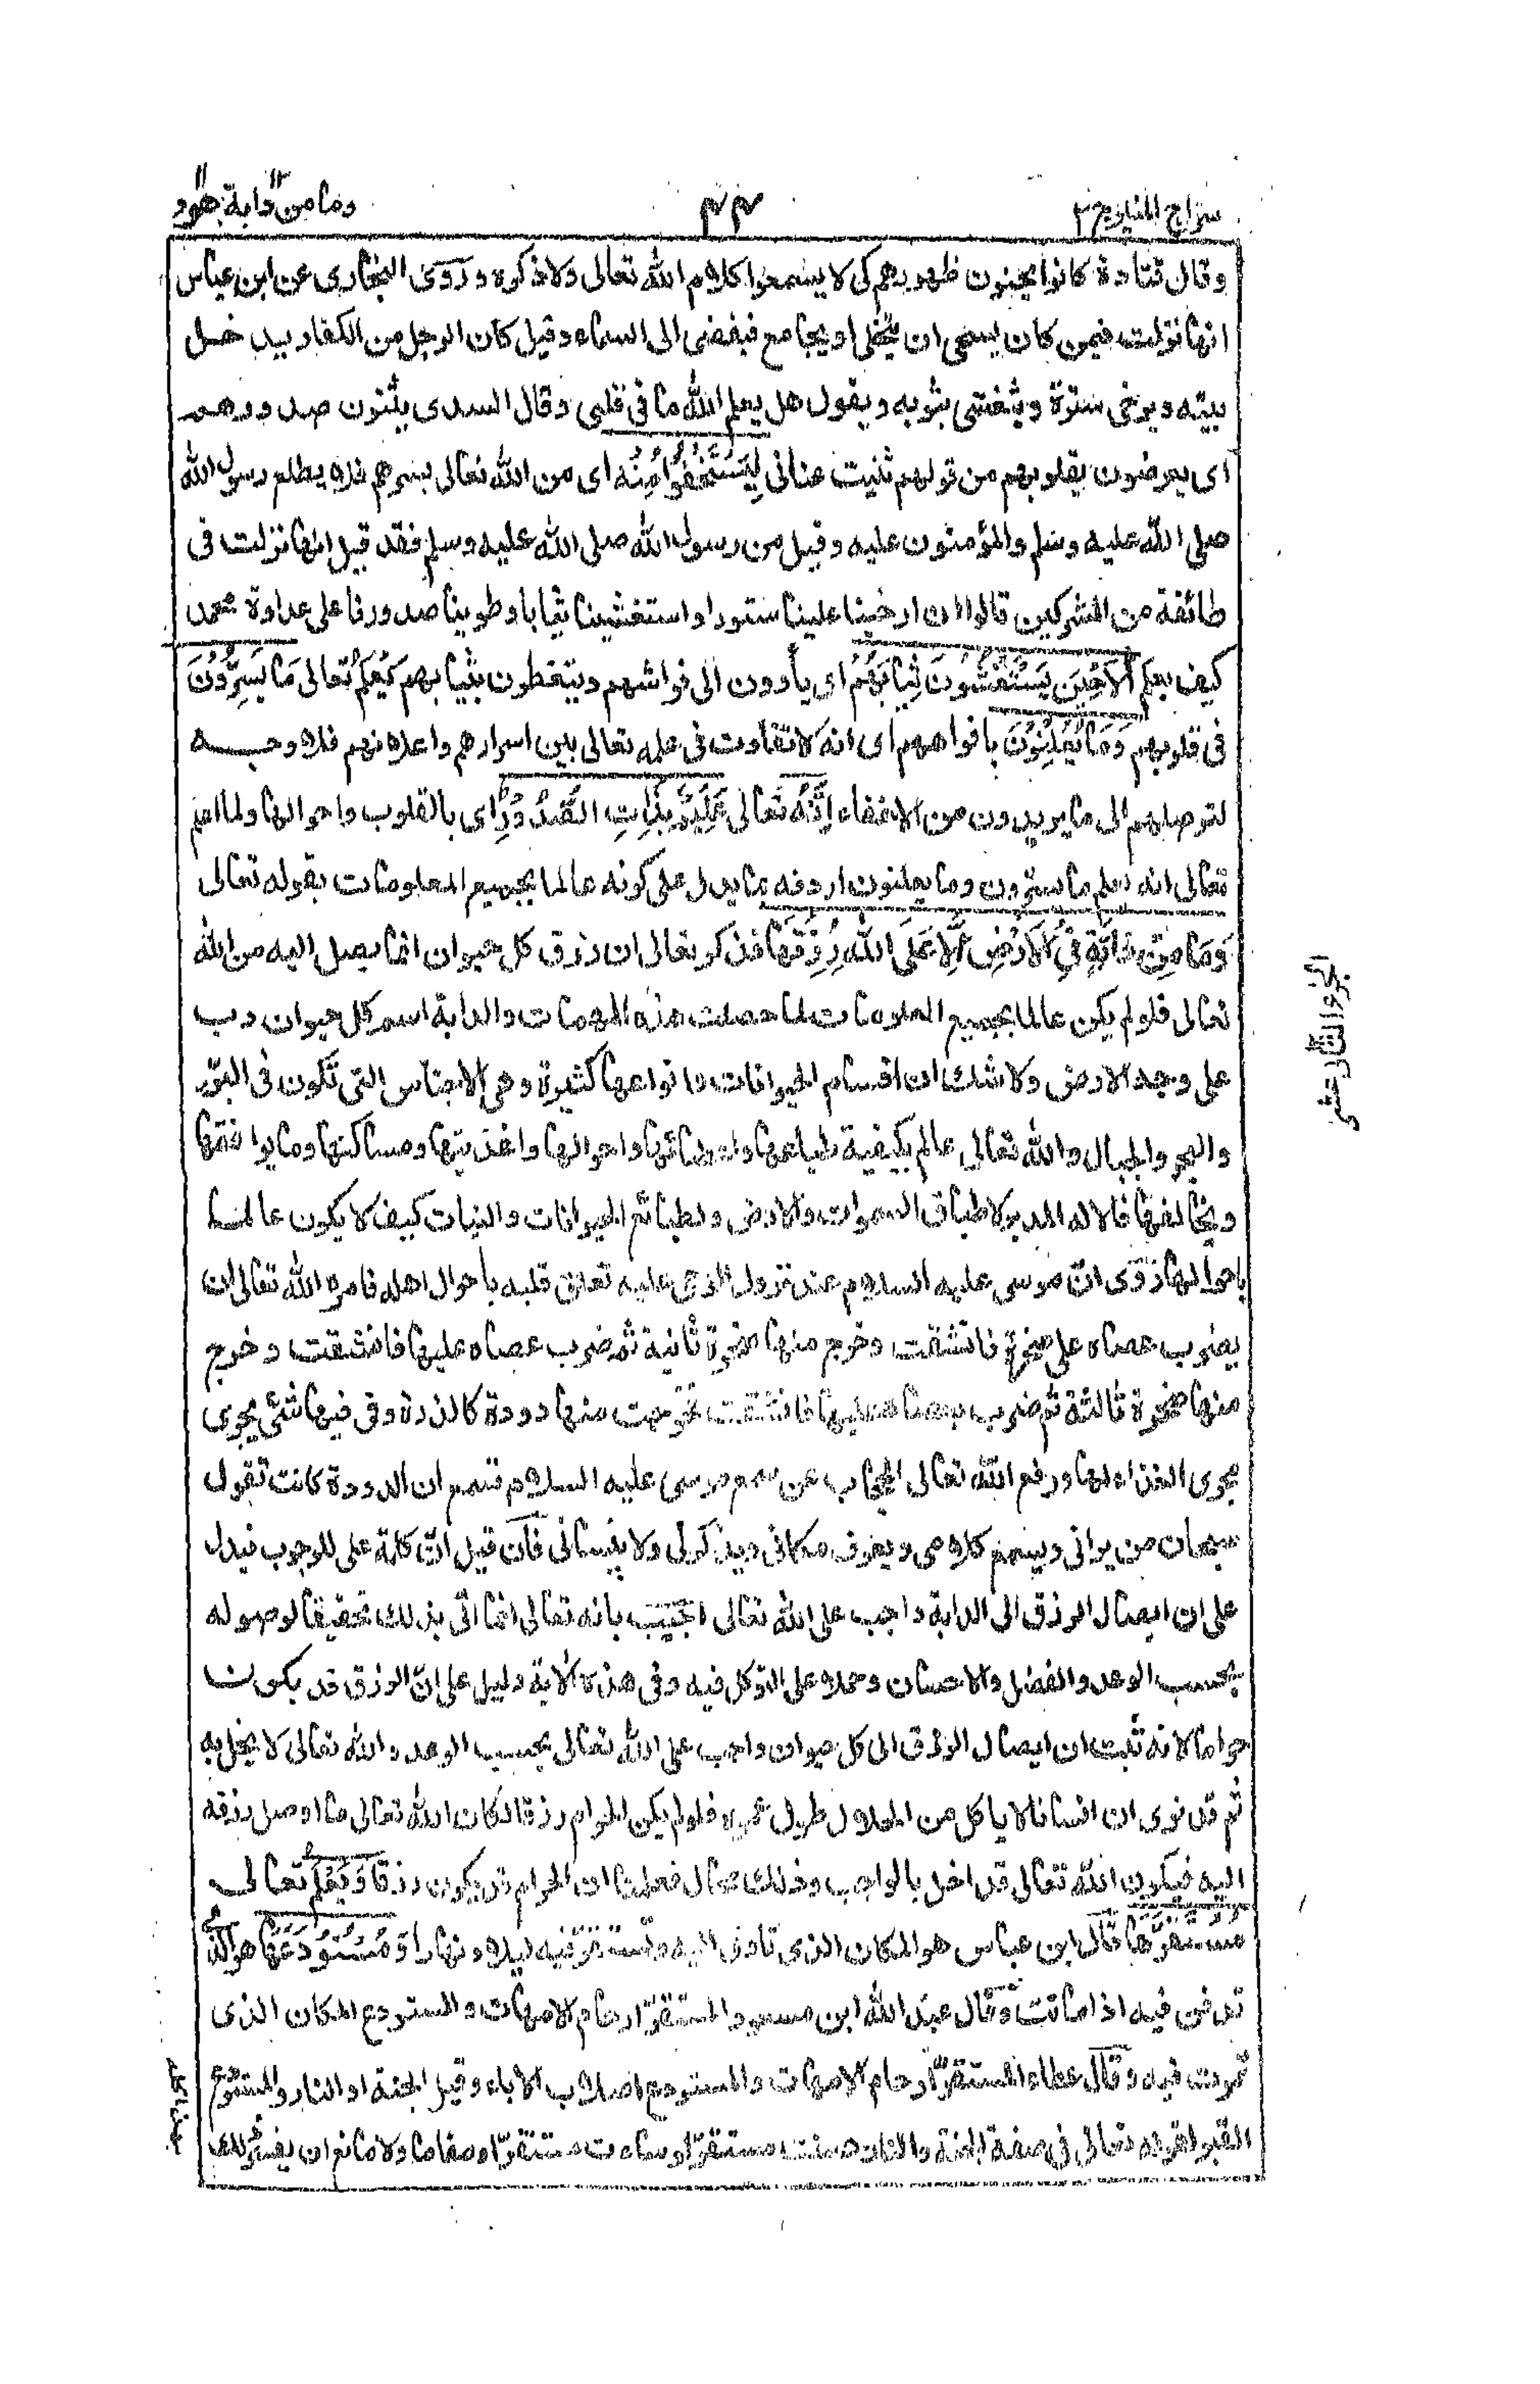 سراج المنير ج ٢
٤٤
وما من دابة ١٢ هود ١١
وقال قتادة كانوا يحنون ظهورهم كى لا يسمعوا كلام الله تعالى ولا ذكره وروى البخارى عن ابن عباس
انها نزلت فيمن كان يستحى ان يتخلى او يجامع فيفضى الى السماء وقيل كان الرجل من الكفار يدخل
بيته ويرخى ستره ويتغشى بثوبه ويقول هل يعلم الله ما فى قلبى وقال السدى يثنون صدورهم
اى يعرضون بقلوبهم من قولهم ثنيت عنانى لِيَسْتَخْفُوا مِنْهُ اى من الله تعالى بسرهم فلا يطلع رسول الله
صلى الله عليه وسلم والمؤمنون عليه وقيل من رسول الله صلى الله عليه وسلم فقد قيل انها نزلت فى
طائفة من المشركين قالوا ان ارخينا علينا ستورا واستغشينا ثيابا وطوينا صدورنا على عداوة محمد
كيف يعلم اَلَا حِيْنَ يَسْتَغْشُوْنَ ثِيَابَهُمْ اى يأوون الى فراشهم ويتغطون بثيابهم يَعْلَمُ تعالى مَا يُسِرُّوْنَ
فى قلوبهم وَمَا يُعْلِنُوْنَ بافواههم اى انه لا تفاوت فى علمه تعالى بين اسرارهم واعلانهم فلا وجه
لتوصلهم الى ما يريدون من الاخفاء اِنَّهٗ تعالى عَلِيْمٌۢ بِذَاتِ الصُّدُوْرِ اى بالقلوب واحوالها ولما اعلم
تعالى انه يعلم ما يسرون وما يعلنون اردفه بما يدل على كونه عالما بجميع المعلومات بقوله تعالى
وَمَا مِنْ دَابَّةٍ فِى الْاَرْضِ اِلَّا عَلَى اللهِ رِزْقُهَا فذكر تعالى ان رزق كل حيوان انما يصل اليه من الله
تعالى فلو لم يكن عالما بجميع المعلومات لما حصلت هذه المهمات والدابة اسم كل حيوان دب
على وجه الارض ولا شك ان اقسام الحيوانات وانواعها كثيرة وهى الاجناس التى تكون فى البر
والبحر والجبال والله تعالى عالم بكيفية طبائعها واعضائها واحوالها واغذيتها ومساكنها وما يوافقها
ويخالفها فالاله المدبر لاطباق السموات والارض ولطبائع الحيوانات والنبات كيف لا يكون عالما
باحوالها رُوِى انّ موسى عليه السلام عند نزول الوحى عليه تعلق قلبه باحوال اهله فامره الله تعالى ان
يضرب عصاه على صخرة فانشقت وخرج منها صخرة ثانية ثم ضرب عصاه عليها فانشقت وخرج
منها صخرة ثالثة ثم ضرب بعصاه عليها فانشقت فخرجت منها دودة كالذرة وفى فيها شئ يجرى
مجرى الغذاء لها ورفع الله تعالى الحجاب عن سمع موسى عليه السلام فسمع ان الدودة كانت تقول
سبحان من يرانى ويسمع كلامى ويعرف مكانى ويذكرنى ولا ينسانى فان قيل انّ كلمة على للوجوب فيدل
على ان ايصال الرزق الى الدابة واجب على الله تعالى اجيب بانه تعالى انما اتى بذلك تحقيقا لوصوله
بحسب الوعد والفضل والاحسان وحملا على التوكل فيه وفى هذه الآية دليل على انّ الرزق قد يكون
حراما لانه ثبت ان ايصال الرزق الى كل حيوان واجب على الله تعالى بحسب الوعد والله تعالى لا يخل به
ثم قد نرى ان انسانا لا ياكل من الحلال طول عمره فلو لم يكن الحرام رزقا لكان الله تعالى ما اوصل رزقه
اليه فيكون الله تعالى قد اخل بالواجب وذلك محال فعلمنا ان الحرام قد يكون رزقا وَيَعْلَمُ تعالى
مُسْتَقَرَّهَا قال ابن عباس هو المكان الذى تاوى اليه وتستقرّ فيه ليلا ونهارا وَمُسْتَوْدَعَهَا هو الذى
تدفن فيه اذا ماتت وقال عبد الله ابن مسعود المستقرّ ارحام الامهات والمستودع المكان الذى
تموت فيه وقال عطاء المستقرّ ارحام الامهات والمستودع اصلاب الآباء وقيل الجنة او النار والمستودع
القبر لقوله تعالى فى صفة الجنة والنار حسنت مستقرّا وساءت مستقرّا ومقاما ولا مانع ان يفسر ذلك
الجزء الثانى عشر